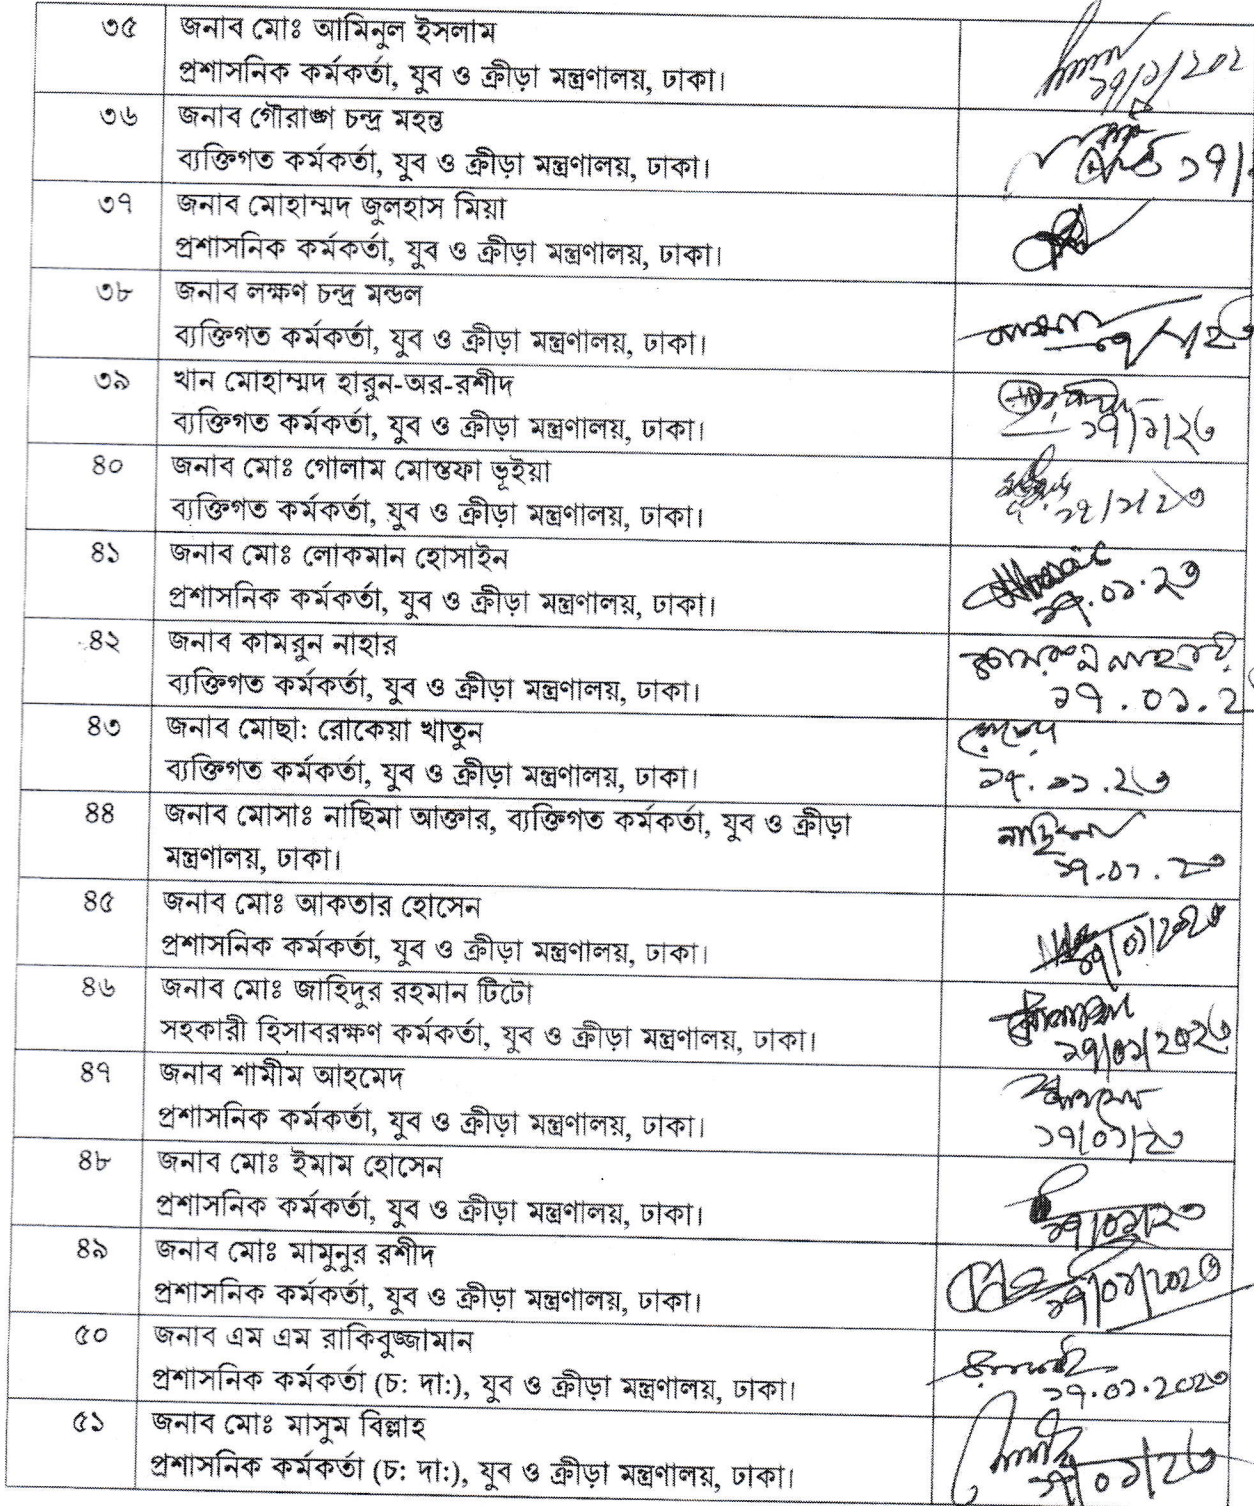 ৩৫ জনাব মোঃ আমিনুল ইসলাম
প্রশাসনিক কর্মকর্তা, যুব ও ক্রীড়া মন্ত্রণালয়, ঢাকা।
৩৬ জনাব গৌরাঙ্গ চন্দ্র মহন্ত
ব্যক্তিগত কর্মকর্তা, যুব ও ক্রীড়া মন্ত্রণালয়, ঢাকা।
৩৭ জনাব মোহাম্মদ জুলহাস মিয়া
প্রশাসনিক কর্মকর্তা, যুব ও ক্রীড়া মন্ত্রণালয়, ঢাকা।
৩৮ জনাব লক্ষণ চন্দ্র মন্ডল
ব্যক্তিগত কর্মকর্তা, যুব ও ক্রীড়া মন্ত্রণালয়, ঢাকা।
৩৯ খান মোহাম্মদ হারুন-অর-রশীদ
ব্যক্তিগত কর্মকর্তা, যুব ও ক্রীড়া মন্ত্রণালয়, ঢাকা।
১৭/১/২৩
৪০ জনাব মোঃ গোলাম মোস্তফা ভূইয়া
ব্যক্তিগত কর্মকর্তা, যুব ও ক্রীড়া মন্ত্রণালয়, ঢাকা।
১৭/১/২৩
৪১ জনাব মোঃ লোকমান হোসাইন
প্রশাসনিক কর্মকর্তা, যুব ও ক্রীড়া মন্ত্রণালয়, ঢাকা।
১৭.০১.২৩
৪২ জনাব কামরুন নাহার
ব্যক্তিগত কর্মকর্তা, যুব ও ক্রীড়া মন্ত্রণালয়, ঢাকা।
৪৩ জনাব মোছা: রোকেয়া খাতুন
ব্যক্তিগত কর্মকর্তা, যুব ও ক্রীড়া মন্ত্রণালয়, ঢাকা।
১৭.০১.২৩
৪৪ জনাব মোসাঃ নাছিমা আক্তার, ব্যক্তিগত কর্মকর্তা, যুব ও ক্রীড়া
মন্ত্রণালয়, ঢাকা।
১৭.০১.২৩
৪৫ জনাব মোঃ আকতার হোসেন
প্রশাসনিক কর্মকর্তা, যুব ও ক্রীড়া মন্ত্রণালয়, ঢাকা।
১৭/০১/২০২৩
৪৬ জনাব মোঃ জাহিদুর রহমান টিটো
সহকারী হিসাবরক্ষণ কর্মকর্তা, যুব ও ক্রীড়া মন্ত্রণালয়, ঢাকা।
১৭/০১/২০২৩
৪৭ জনাব শামীম আহমেদ
প্রশাসনিক কর্মকর্তা, যুব ও ক্রীড়া মন্ত্রণালয়, ঢাকা।
১৭/০১/২৩
৪৮ জনাব মোঃ ইমাম হোসেন
প্রশাসনিক কর্মকর্তা, যুব ও ক্রীড়া মন্ত্রণালয়, ঢাকা।
১৭/০১/২৩
৪৯ জনাব মোঃ মামুনুর রশীদ
প্রশাসনিক কর্মকর্তা, যুব ও ক্রীড়া মন্ত্রণালয়, ঢাকা।
১৭/০১/২০২৩
৫০ জনাব এম এম রাকিবুজ্জামান
প্রশাসনিক কর্মকর্তা (চ: দা:), যুব ও ক্রীড়া মন্ত্রণালয়, ঢাকা।
১৭.০১.২০২৩
৫১ জনাব মোঃ মাসুম বিল্লাহ
প্রশাসনিক কর্মকর্তা (চ: দা:), যুব ও ক্রীড়া মন্ত্রণালয়, ঢাকা।
১৭/০১/২৩